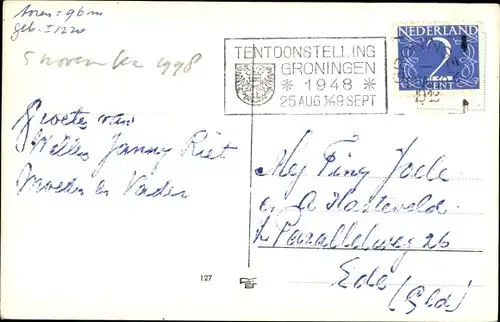 toren = 96 m
geb. ± 1220
5 november 1998
TENTOONSTELLING
GRONINGEN
* 1948 *
25 AUG T/M 9 SEPT
NEDERLAND
2
CENT
1948
Groeten van
Willy Janny Riet
Moeder en Vader
Mej Tiny
A
Paralelweg 26
Ede
(Gld)
127